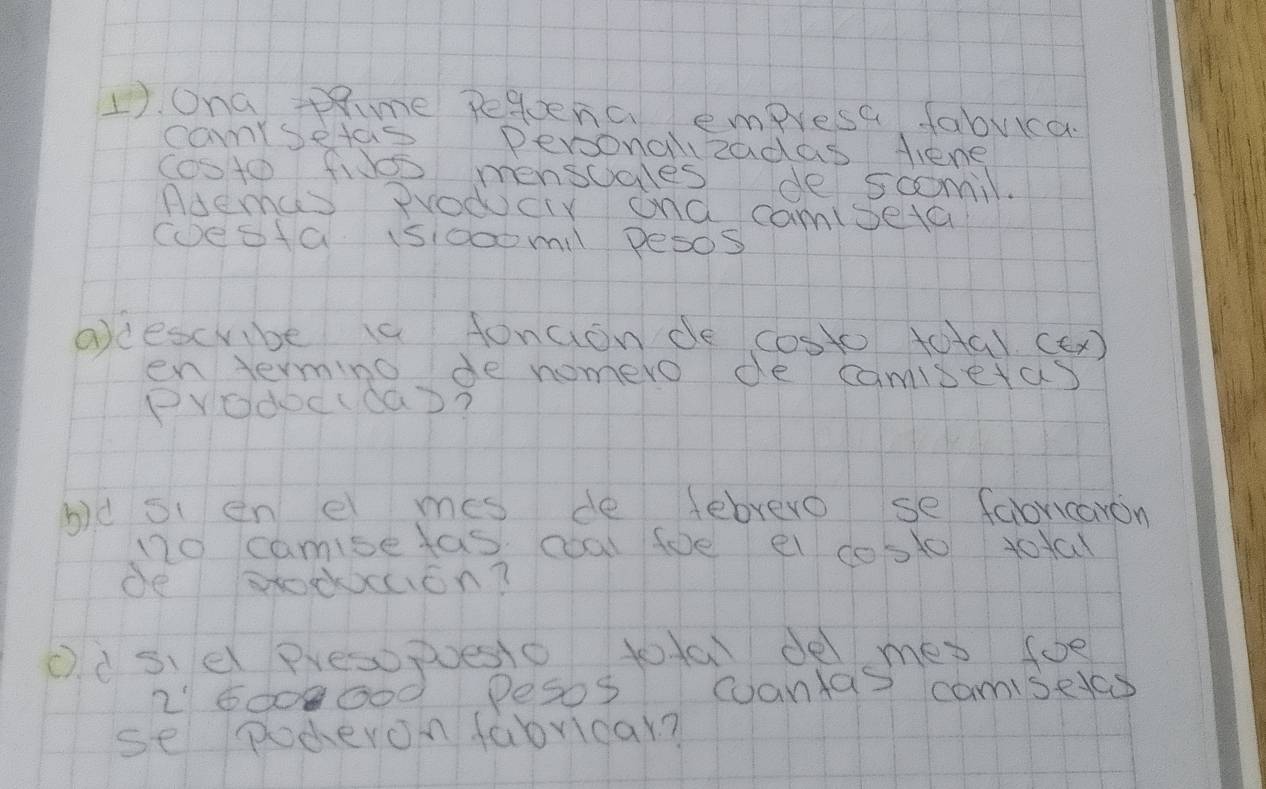 1). Ona Pequena empresa fabrica.
camisetas Personalizadas tiene
costo fijos mensuales de 500mil.
Ademas Producir una camiseta
cuesta 15'000mil pesos
a) describe la foncion de costo total c(x)
en termino de nomero de camisetas
Prododcidas?
b) ¿ si en el mes de febrero se fabricaron
120 camisetas coal foe el costo total
de producción?
c) ¿ si el Presopuesto total del mes foe
2'600000 pesos cuantas camisetas
se poderon fabricar?